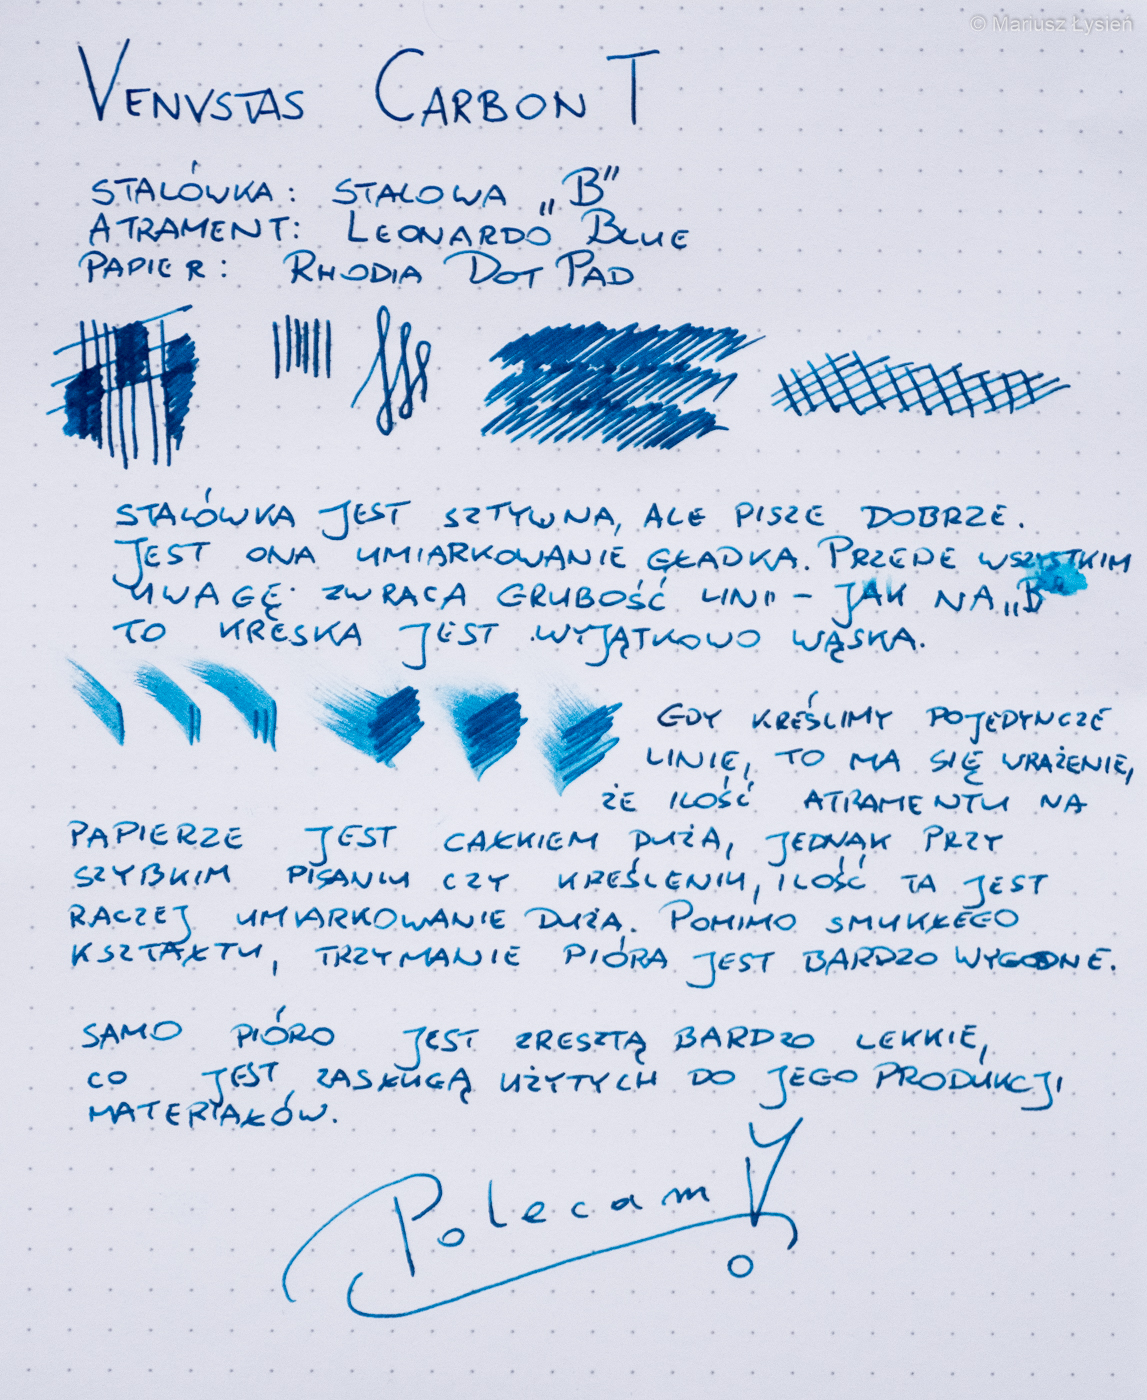 © Mariusz Łysień
VENVSTAS CARBON T
STALÓWKA: STALOWA „B”
ATRAMENT: LEONARDO BLUE
PAPIER: RHODIA DOT PAD
STALÓWKA JEST SZTYWNA, ALE PISZE DOBRZE.
JEST ONA UMIARKOWANIE GŁADKA. PRZEDE WSZYSTKIM
UWAGĘ ZWRACA GRUBOŚĆ LINII – JAK NA „B”
TO KRESKA JEST WYJĄTKOWO WĄSKA.
GDY KREŚLIMY POJEDYNCZE
LINIE, TO MA SIĘ WRAŻENIE,
ŻE ILOŚĆ ATRAMENTU NA
PAPIERZE JEST CAŁKIEM DUŻA, JEDNAK PRZY
SZYBKIM PISANIU CZY KREŚLENIU, ILOŚĆ TA JEST
RACZEJ UMIARKOWANIE DUŻA. POMIMO SMUKŁEGO
KSZTAŁTU, TRZYMANIE PIÓRA JEST BARDZO WYGODNE.
SAMO PIÓRO JEST ZRESZTĄ BARDZO LEKKIE,
CO JEST ZASŁUGĄ UŻYTYCH DO JEGO PRODUKCJI
MATERIAŁÓW.
Polecam!